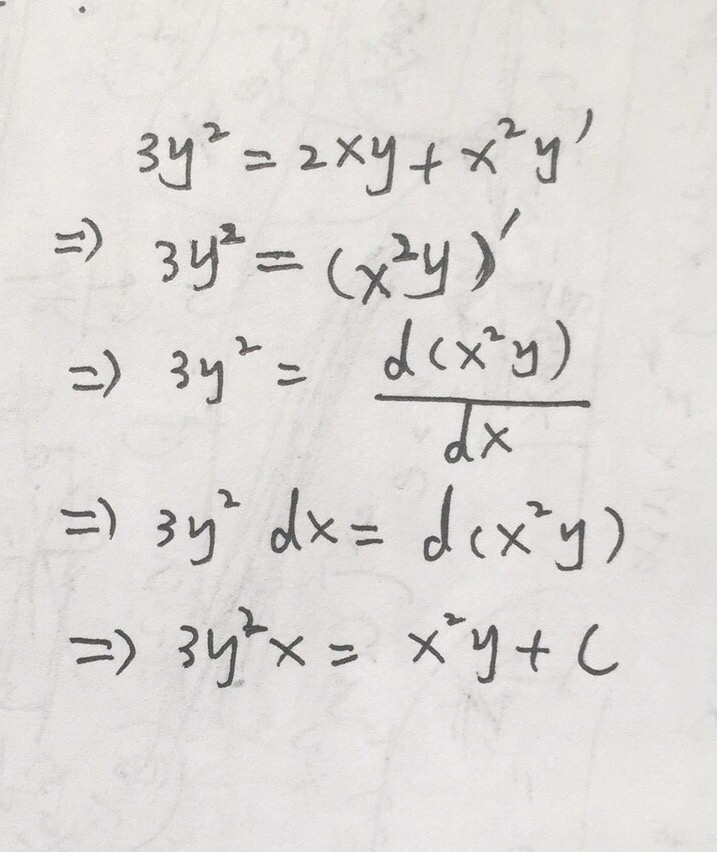 3y² = 2xy + x²y'
⇒ 3y² = (x²y)'
⇒ 3y² = d(x²y)/dx
⇒ 3y² dx = d(x²y)
⇒ 3y²x = x²y + C